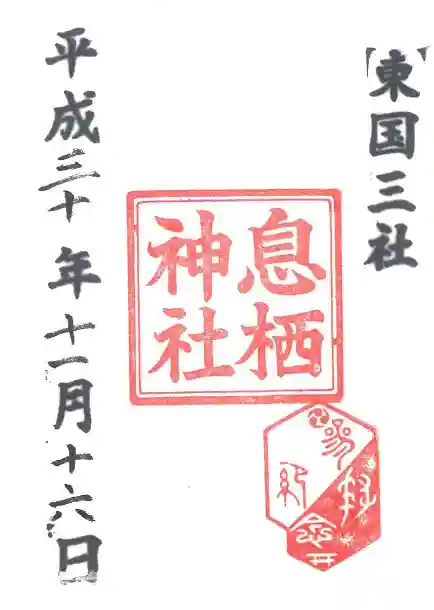 東国三社
息栖
神社
参拝
紀念
平成三十年十一月十六日